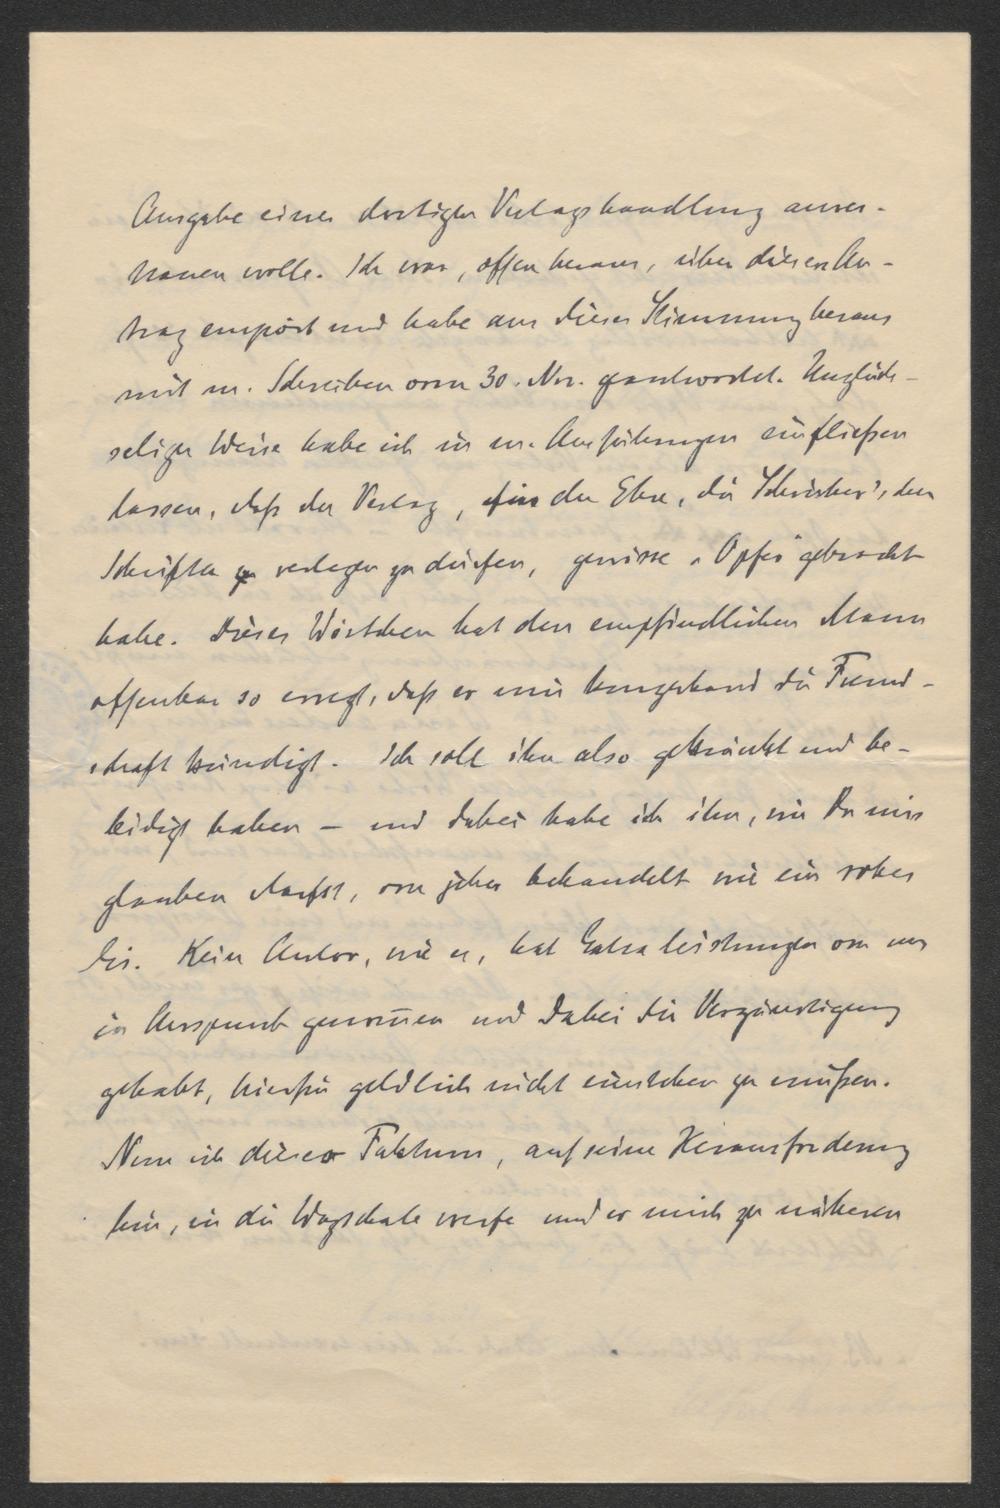 Ausgabe einer dortigen Verlagshandlung anver-
trauen wolle. Ich war, offen heraus, über diesen An-
trag empört und habe aus dieser Stimmung heraus
mit m. Schreiben vom 30. Nov. geantwortet. Unglück-
seliger Weise habe ich in m. Ausführungen einfließen
lassen, daß der Verlag, für die Ehre, die Schreker'schen
Schriften zu verlegen zu dürfen, gewisse „Opfer" gebracht
habe. Dieses Wörtchen hat den empfindlichen Mann
offenbar so erregt, daß er mir kurzerhand die Freund-
schaft kündigt. Ich soll ihn also gekränkt und be-
leidigt haben – und dabei habe ich ihn, wie Du mir
glauben darfst, von jeher behandelt wie ein rohes
Ei. Kein Autor, wie er, hat Extraleistungen von uns
in Anspruch genommen und dabei die Vergünstigung
gehabt, hierfür geldlich nicht einstehen zu müßen.
Nun ich dieses Faktum, auf seine Herausforderung
hin, in die Wagschale werfe und er mich zu näheren